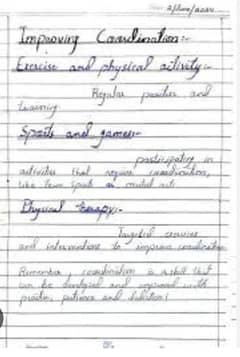 2/June/2024
Improving Coordination:-
Exercise and physical activity:-
Regular practice and
training
Sports and games:-
participating in
activities that require coordination,
like team sports or martial arts
Physical therapy:-
Targeted exercises
and interventions to improve coordination
Remember, coordination is a skill that
can be developed and improved with
practice, patience and